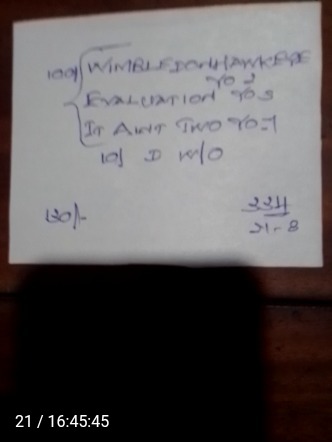 100/ WIMBLEDON HAWKEYE
TO 2
EVALUATION TO 3
IT AINT TWO TO-1
10/ D W/O
120/-
334
21-8
21 / 16:45:45